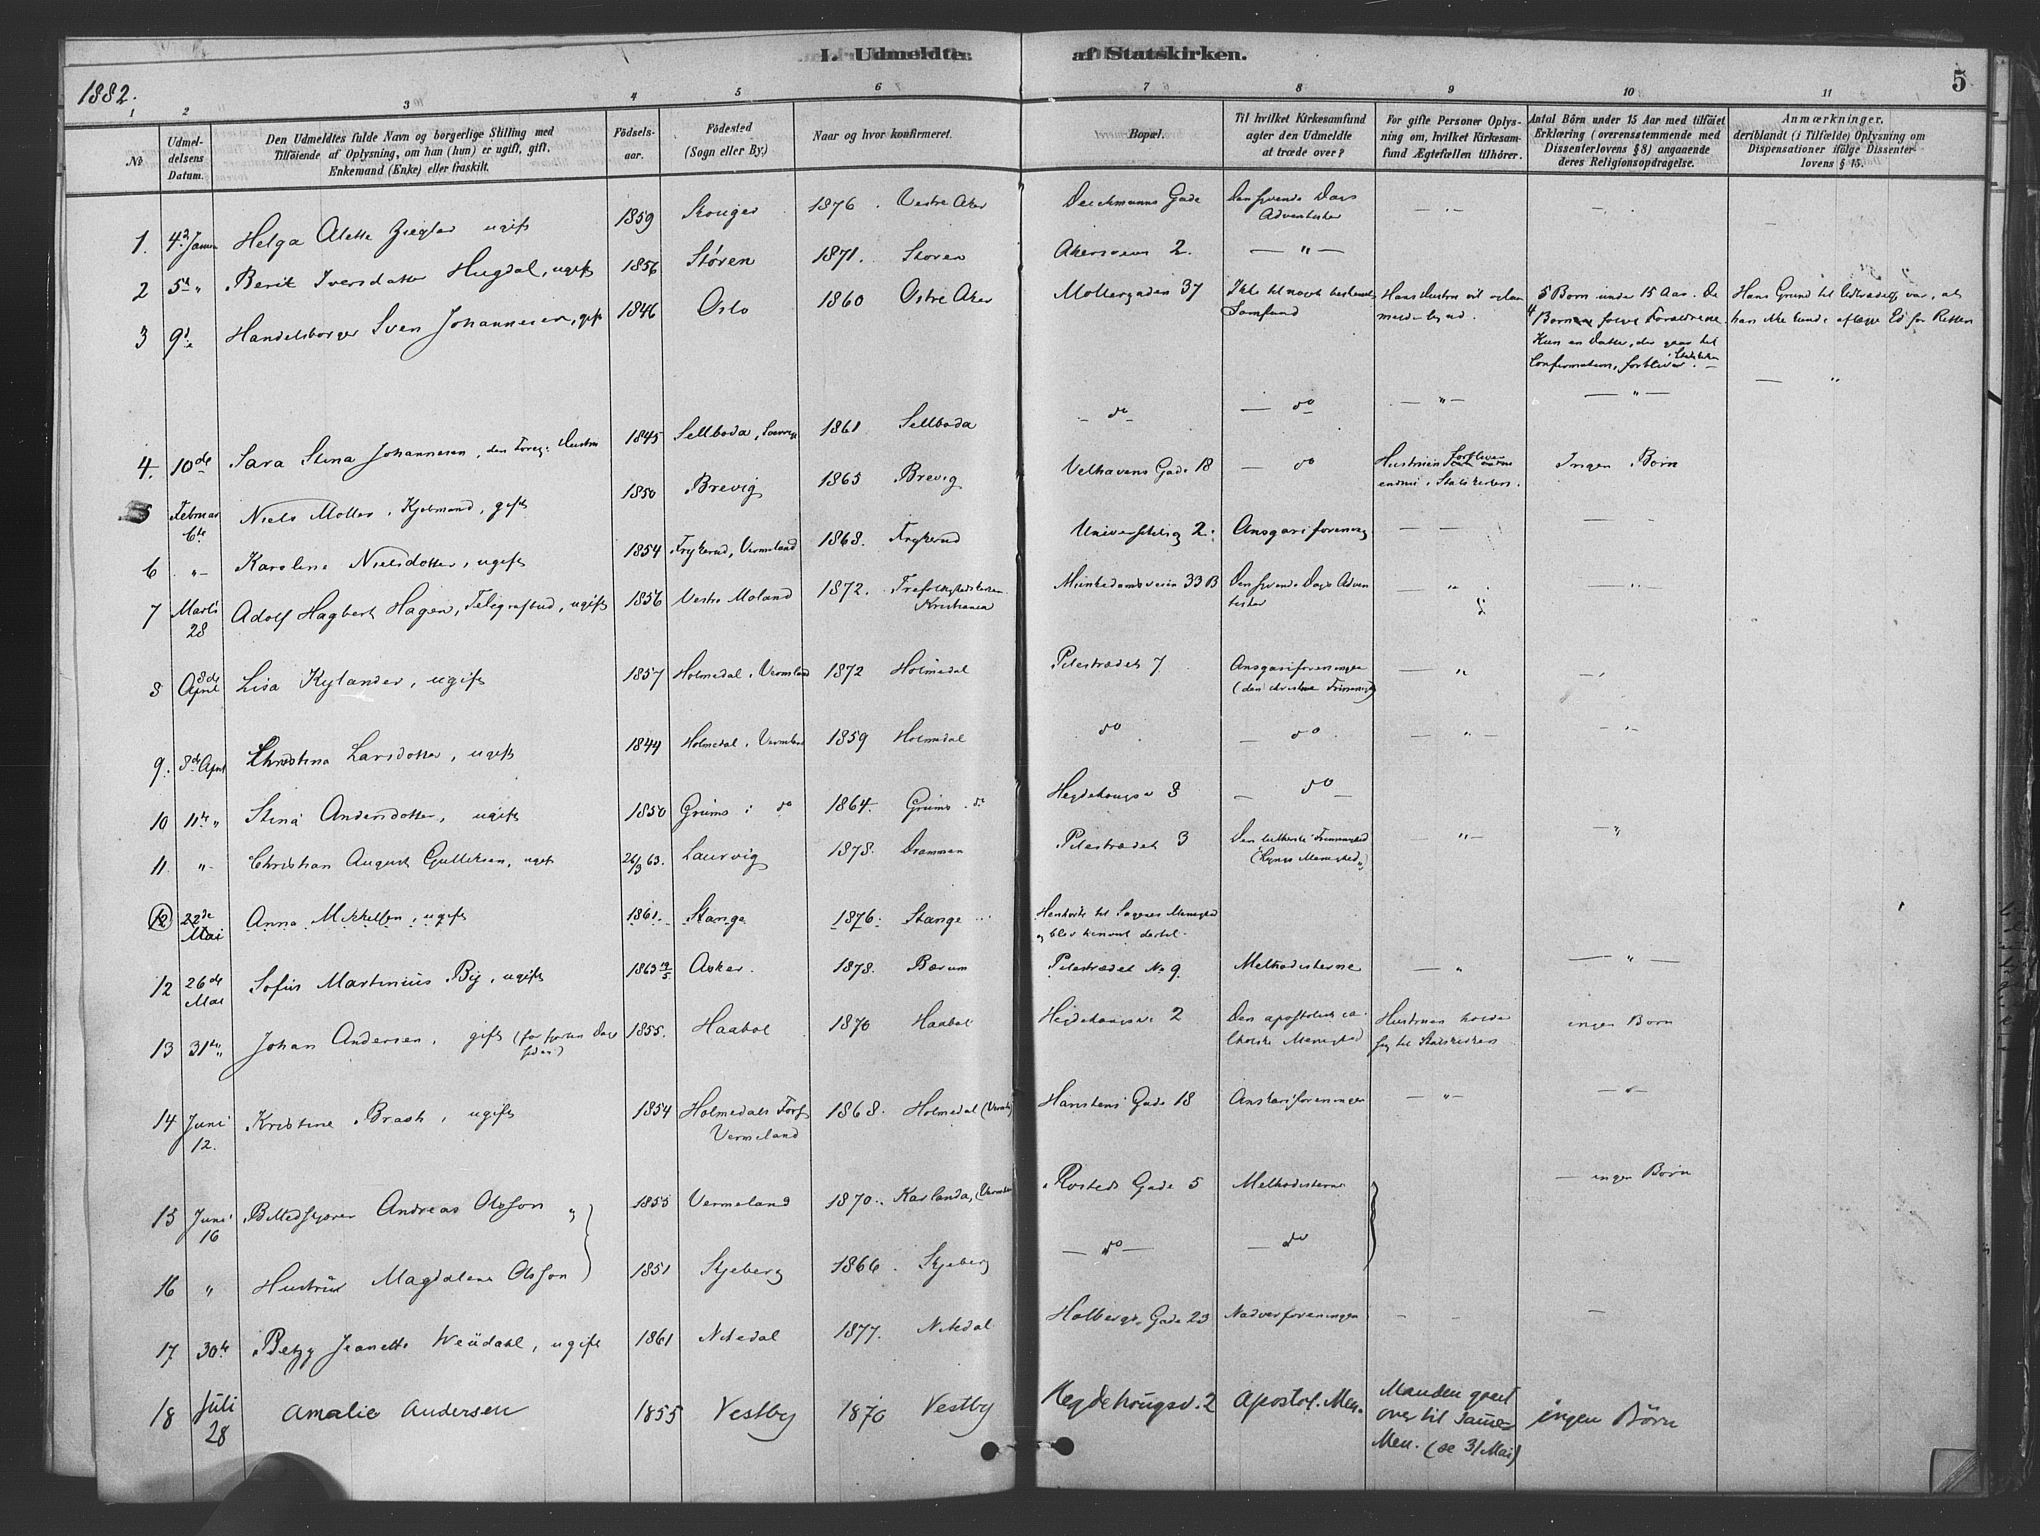 I. Udmeldte af Statskirken.
1882.
5
1 2 3 4 5 6 7 8 9 10 11
No
Udmeldelsens Datum.
Den Udmeldtes fulde Navn og borgerlige Stilling med Tilføiende af Oplysning, om han (hun) er ugift, gift, Enkemand (Enke) eller fraskilt.
Fødselsaar.
Fødested (Sogn eller By.)
Naar og hvor konfirmeret.
Bopæl.
Til hvilket Kirkesamfund agter den Udmeldte at træde over?
For gifte Personer Oplysning om, hvilket Kirkesamfund Ægtefællen tilhører.
Antal Børn under 15 Aar med tilføiet Erklæring (overensstemmende med Dissenterlovens § 8) angaaende deres Religionsopdragelse.
Anmærkninger, deriblandt (i Tilfælde) Oplysning om Dispensationer ifølge Dissenterlovens § 15.
1. 4de Januar Helga Alette Ziegler ugift 1859 Skouger 1876. Vestre Aker Deichmanns Gade Den syvende Dags Adventister
2 5te " Berit Iversdatter Hugdal, ugift 1856 Støren 1871. Støren Akersveien 2. — " —
3 9de Handelsborger Sven Johannesen, gift 1846 Oslo 1860 Østre Aker Møllergaden 37 Ikke til noget bestemt Samfund Hans Hustru vil og 5 Børn under 15 Aar. De 4 Børn følge Forældrene Kun en Datter, der gaar til Confirmation, forbliver i Statskirken. Hans Grund til Udtrædelse var, at han ikke kunde aflægge Ed for Retten
4. 10de Sara Stina Johannesen, den Foreg. Hustru 1845 Sellboda, Sverrige 1861 Sellboda — do — do — " — — " — — "
5 Februar 6te Niels Møller, Kjøbmand, gift 1850 Brevig 1865 Brevig Velhavens Gade 18 — do Hustruen forbliver endnu i Statskirken. Ingen Børn
6 — " — Karoline Nielsdotter, ugift 1854 Frykerud, Vermeland 1868. Frykerud Universitetsg 2. Ansgariforening
7 Marts 28 Adolf Hagbart Hagen, Telegrafbud, ugift 1856 Vestre Moland 1872. Trefoldighedskirken Kristiania Munkedamsveien 33 B Den syvende Dags Adventister
8 8de April Lisa Kylander, ugift 1857 Holmedal i Vermland 1872 Holmedal Pilestrædet 7 Ansgariforeningen (den christne Frimenighed)
9. 8de April Christina Larsdotter, ugift 1844 Holmedal i Vermland 1859 Holmedal do — do — — " —
10 11te " Stina Andersdotter, ugift 1850 Grums i do 1864. Grums. do Hegdehaugsv 8 — do —
11. " Christian August Gulliksen, ugift 26/3 63. Laurvig 1878. Drammen Pilestrædet 3 Den lutherske Frimenighed — " — — "
(12) 22de Mai Anna Mikkelsen, ugift 1861. Stange 1876. Stange Henhørte til Sagenes Menighed og blev henvist dertil.
12 26de Mai Sofus Martinius By, ugift 1863 19/5 Asker. 1878. Bærum Pilestrædet No 9. Methodisterne — " — " —
13 31te " Johan Andersen, gift (for fjorten Dage siden) 1855. Haabøl 1870 Haabøl Hegdehaugsv. 2 Den apostolisk catholske Menighed Hustruen holder sig til Statskirken ingen Børn
14 Juni 12. Kristine Brask, ugift 1854 Holmedals Vermeland 1868. Holmedal Hanstens Gade 18 Anskariforeningen — " —
15 Juni 16 Billedskjærer Andreas Olsson " 1855 Vermeland 1870. Karlanda, Rosteds Gade 5 Methodisterne — ingen Børn
16 " Hustru Magdalene Olsson 1851 Skjeberg 1866. Skjeberg — do — — do
17 30te Betzy Jeanette Weüdahl, ugift 1861 Nitedal 1877. Nitedal Holbergs Gade 23 Nadverforeningen
18 Juli 28 Amalie Andersen 1855 Vestby 1870 Vestby Hegdehougsv. 2 Apostol. Men. Manden gaaet over til samme Men. (se 31 Mai) ingen Børn